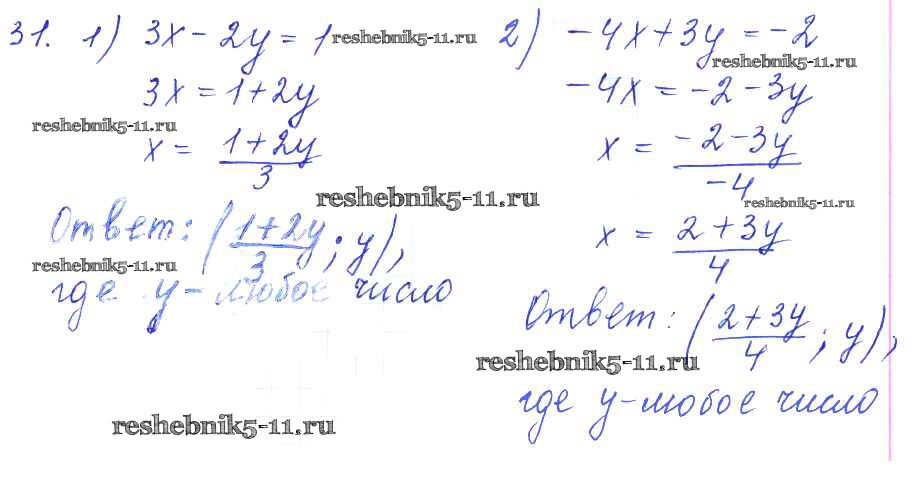 31. 1) 3x - 2y = 1 reshebnik5-11.ru
3x = 1 + 2y
reshebnik5-11.ru
x = (1 + 2y)/3
reshebnik5-11.ru
Ответ: ((1 + 2y)/3 ; y),
reshebnik5-11.ru
где y - любое число
reshebnik5-11.ru
2) -4x + 3y = -2
reshebnik5-11.ru
-4x = -2 - 3y
x = (-2 - 3y)/(-4)
reshebnik5-11.ru
x = (2 + 3y)/4
Ответ: ((2 + 3y)/4 ; y),
reshebnik5-11.ru
где y - любое число